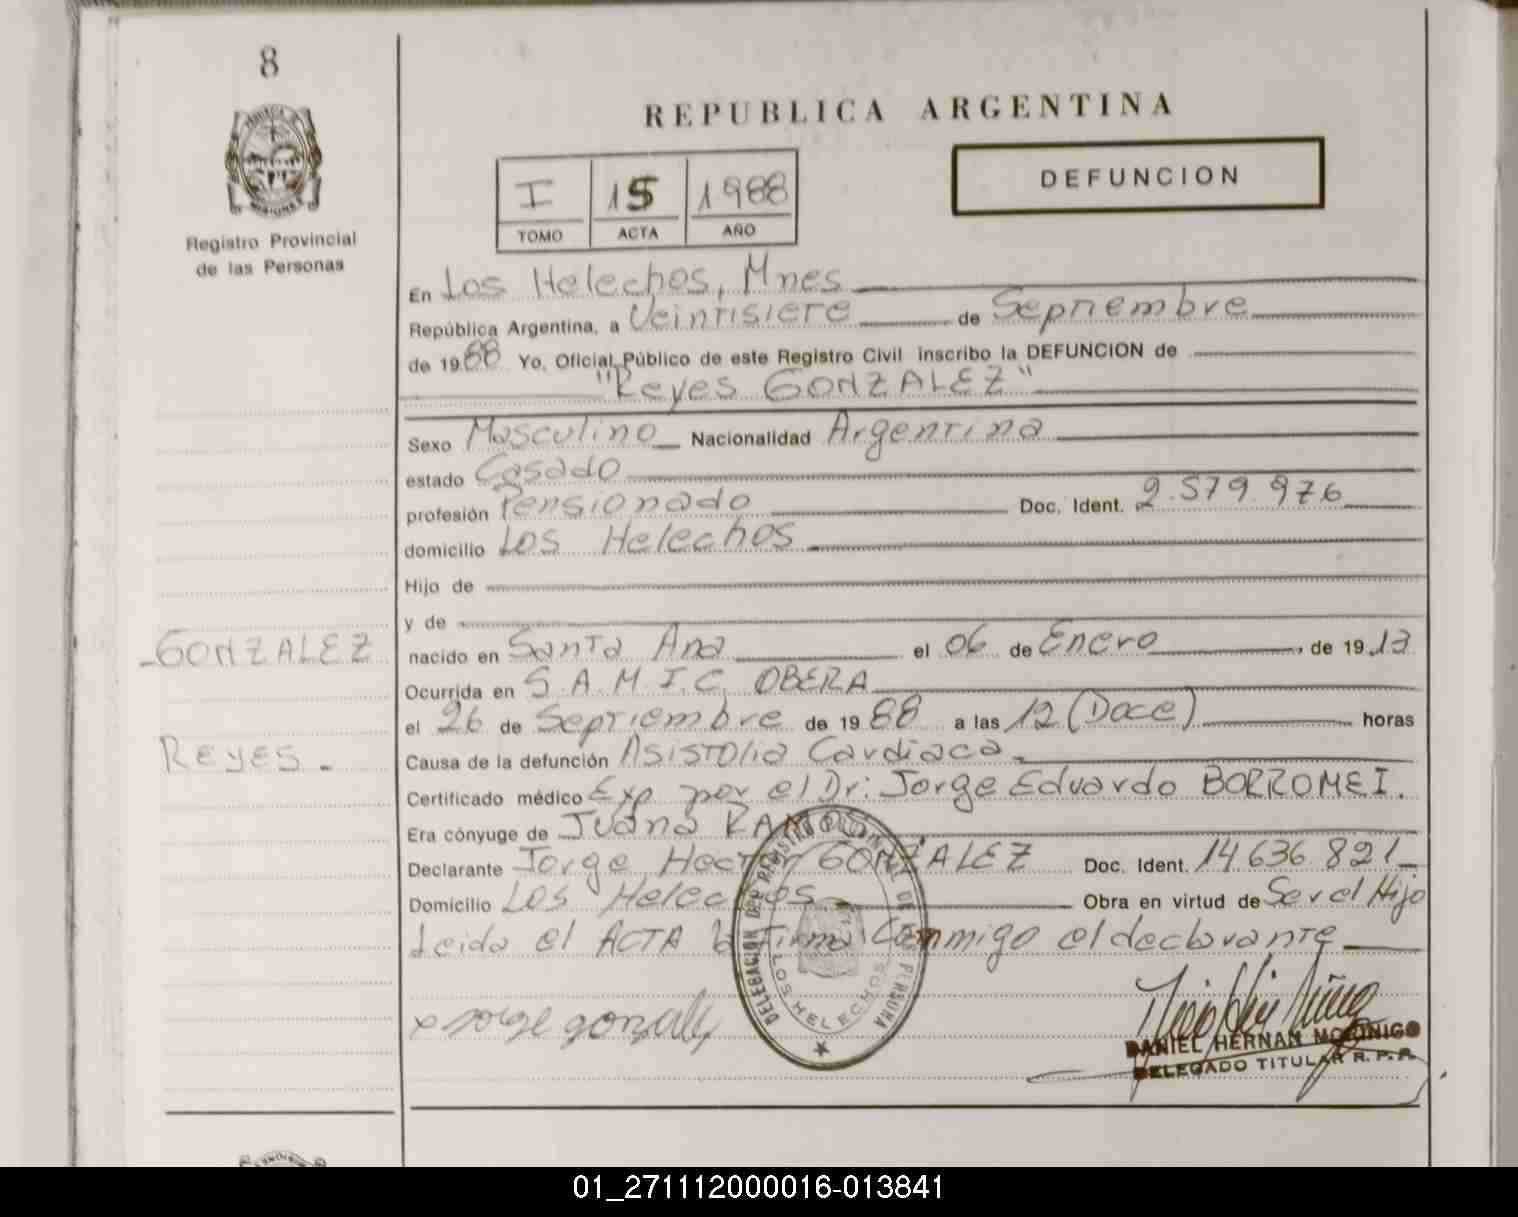 8
REPUBLICA ARGENTINA
I 15 1988
TOMO ACTA AÑO
DEFUNCION
Registro Provincial
de las Personas
En Los Helechos, Mnes
República Argentina, a Veintisiete de Septiembre
de 1988 Yo, Oficial Público de este Registro Civil inscribo la DEFUNCION de
"Reyes GONZALEZ"
Sexo Masculino Nacionalidad Argentina
estado Casado
profesión Pensionado Doc. Ident. 2.579.976
domicilio Los Helechos
Hijo de
y de
GONZALEZ
nacido en Santa Ana el 06 de Enero, de 1913
Ocurrida en S.A.M.I.C. OBERA
el 26 de Septiembre de 1988 a las 12 (Doce) horas
REYES.-
Causa de la defunción Asistolia Cardiaca
Certificado médico Exp por el Dr: Jorge Eduardo BORROMEI.
Era cónyuge de Juana RAMOS
Declarante Jorge Hector GONZALEZ Doc. Ident. 14.636.821
Domicilio Los Helechos Obra en virtud de Ser el Hijo
Leida el ACTA la Firma Conmigo el declarante
x Jorge gonzalez
DELEGACION DEL REGISTRO PROVINCIAL DE LAS PERSONAS
LOS HELECHOS
DANIEL HERNAN MORINIGO
DELEGADO TITULAR R.P.P.
01_271112000016-013841